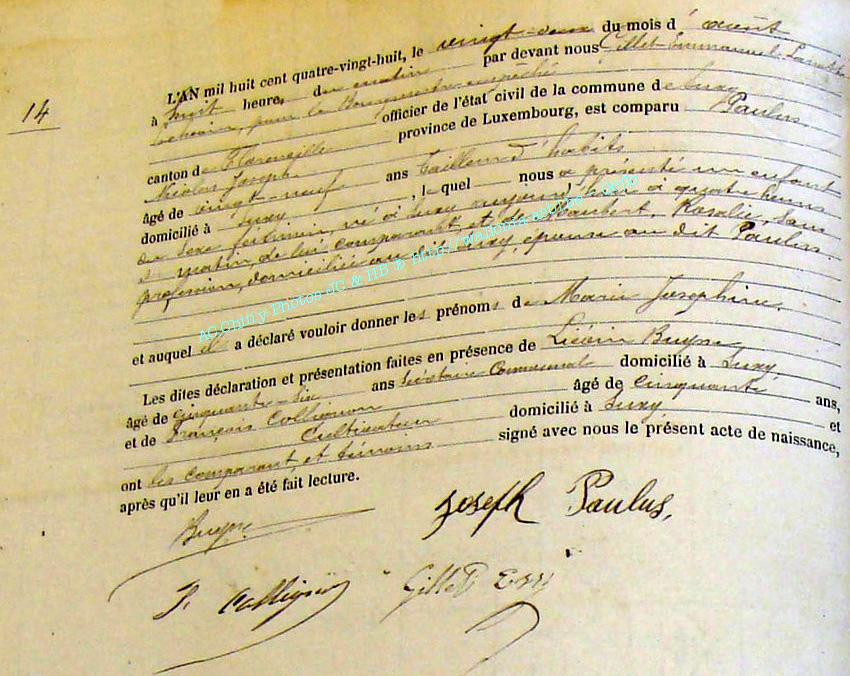 14
L'AN mil huit cent quatre-vingt-huit, le vingt-deux du mois d'août
à huit heure, du matin par devant nous Gillet Emmanuel
Echevin, pour le Bourgmestre empêché
officier de l'état civil de la commune de Suxy
canton de Florenville province de Luxembourg, est comparu Paulus
Nicolas Joseph
âgé de vingt-neuf ans tailleur d'habits
domicilié à Suxy, lequel nous a présenté un enfant
du sexe féminin, né à Suxy aujourd'hui à quatre heures
du matin, de lui comparant, et de Rosalie, sans
profession, domiciliée au dit Suxy, épouse au dit Paulus.
et auquel il a déclaré vouloir donner les prénoms de Marie Joséphine.
Les dites déclaration et présentation faites en présence de
âgé de cinquante-six ans secrétaire Communal domicilié à Suxy
et de François Collignon âgé de cinquante ans,
Cultivateur domicilié à Suxy et
ont les comparant, et témoins signé avec nous le présent acte de naissance,
après qu'il leur en a été fait lecture.
Joseph Paulus,
Collignon Gillet
AC Chiny Photos JC & HB & http://